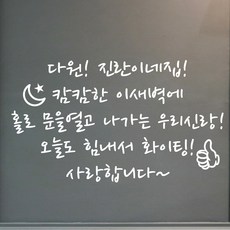 다원! 진란이네집!
캄캄한 이새벽에
홀로 문을열고 나가는 우리신랑!
오늘도 힘내서 화이팅!
사랑합니다~